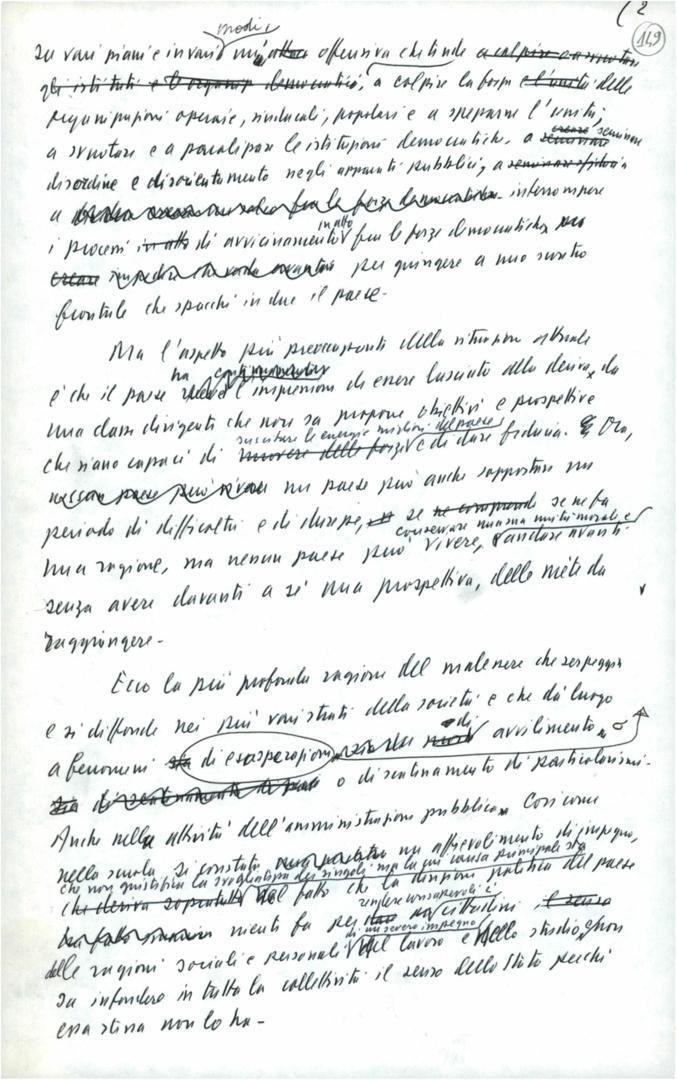 ( 2
149
modi,
su vari piani e in vari un' offensiva che tende a colpire e a svuotare
gli istituti e democratici, a colpire la forza e l'unità delle
organizzazioni operaie, sindacali, popolari e a spezzarne l'unità;
a svuotare e a paralizzare le istituzioni democratiche, a creare seminare
disordine e disorientamento negli apparati pubblici, a seminare sfiducia
a fra le forze democratiche. interrompere
in atto
i processi in atto di avvicinamento fra le forze democratiche
creare impedire che vada avanti per giungere a uno scontro
frontale che spacchi in due il paese.
Ma l'aspetto più preoccupante della situazione attuale
ha
è che il paese riceve l'impressione di essere lasciato alla deriva, da
una classe dirigente che non sa proporre obiettivi e prospettive
suscitare le energie migliori del paese
che siano capaci di muovere delle forze e di dare fiducia. Ora,
nessun paese può vivere un paese può anche sopportare un
periodo di difficoltà e di durezze, se ne comprende se ne ha
conservare una sua unità morale e
una ragione, ma nessun paese può vivere, andare avanti
senza avere davanti a sé una prospettiva, delle mète da
raggiungere.
Ecco la più profonda ragione del malessere che serpeggia
e si diffonde nei più vari strati della società e che dà luogo
a fenomeni sia di esasperazione sia di avvilimento, o
sia di o di scatenamento di particolarismi.
Anche nella attività dell'amministrazione pubblica, così come
nella scuola si constata un affievolimento di impegno,
che non giustifica la svogliatezza dei singoli ma la cui causa principale sta
che deriva soprattutto nel fatto che la direzione politica del paese
rendere consapevoli i
niente fa per cittadini il senso
di un severo impegno
delle ragioni sociali e personali nel lavoro e nello studio, e non
sa infondere in tutta la collettività il senso dello Stato perché
essa stessa non lo ha.